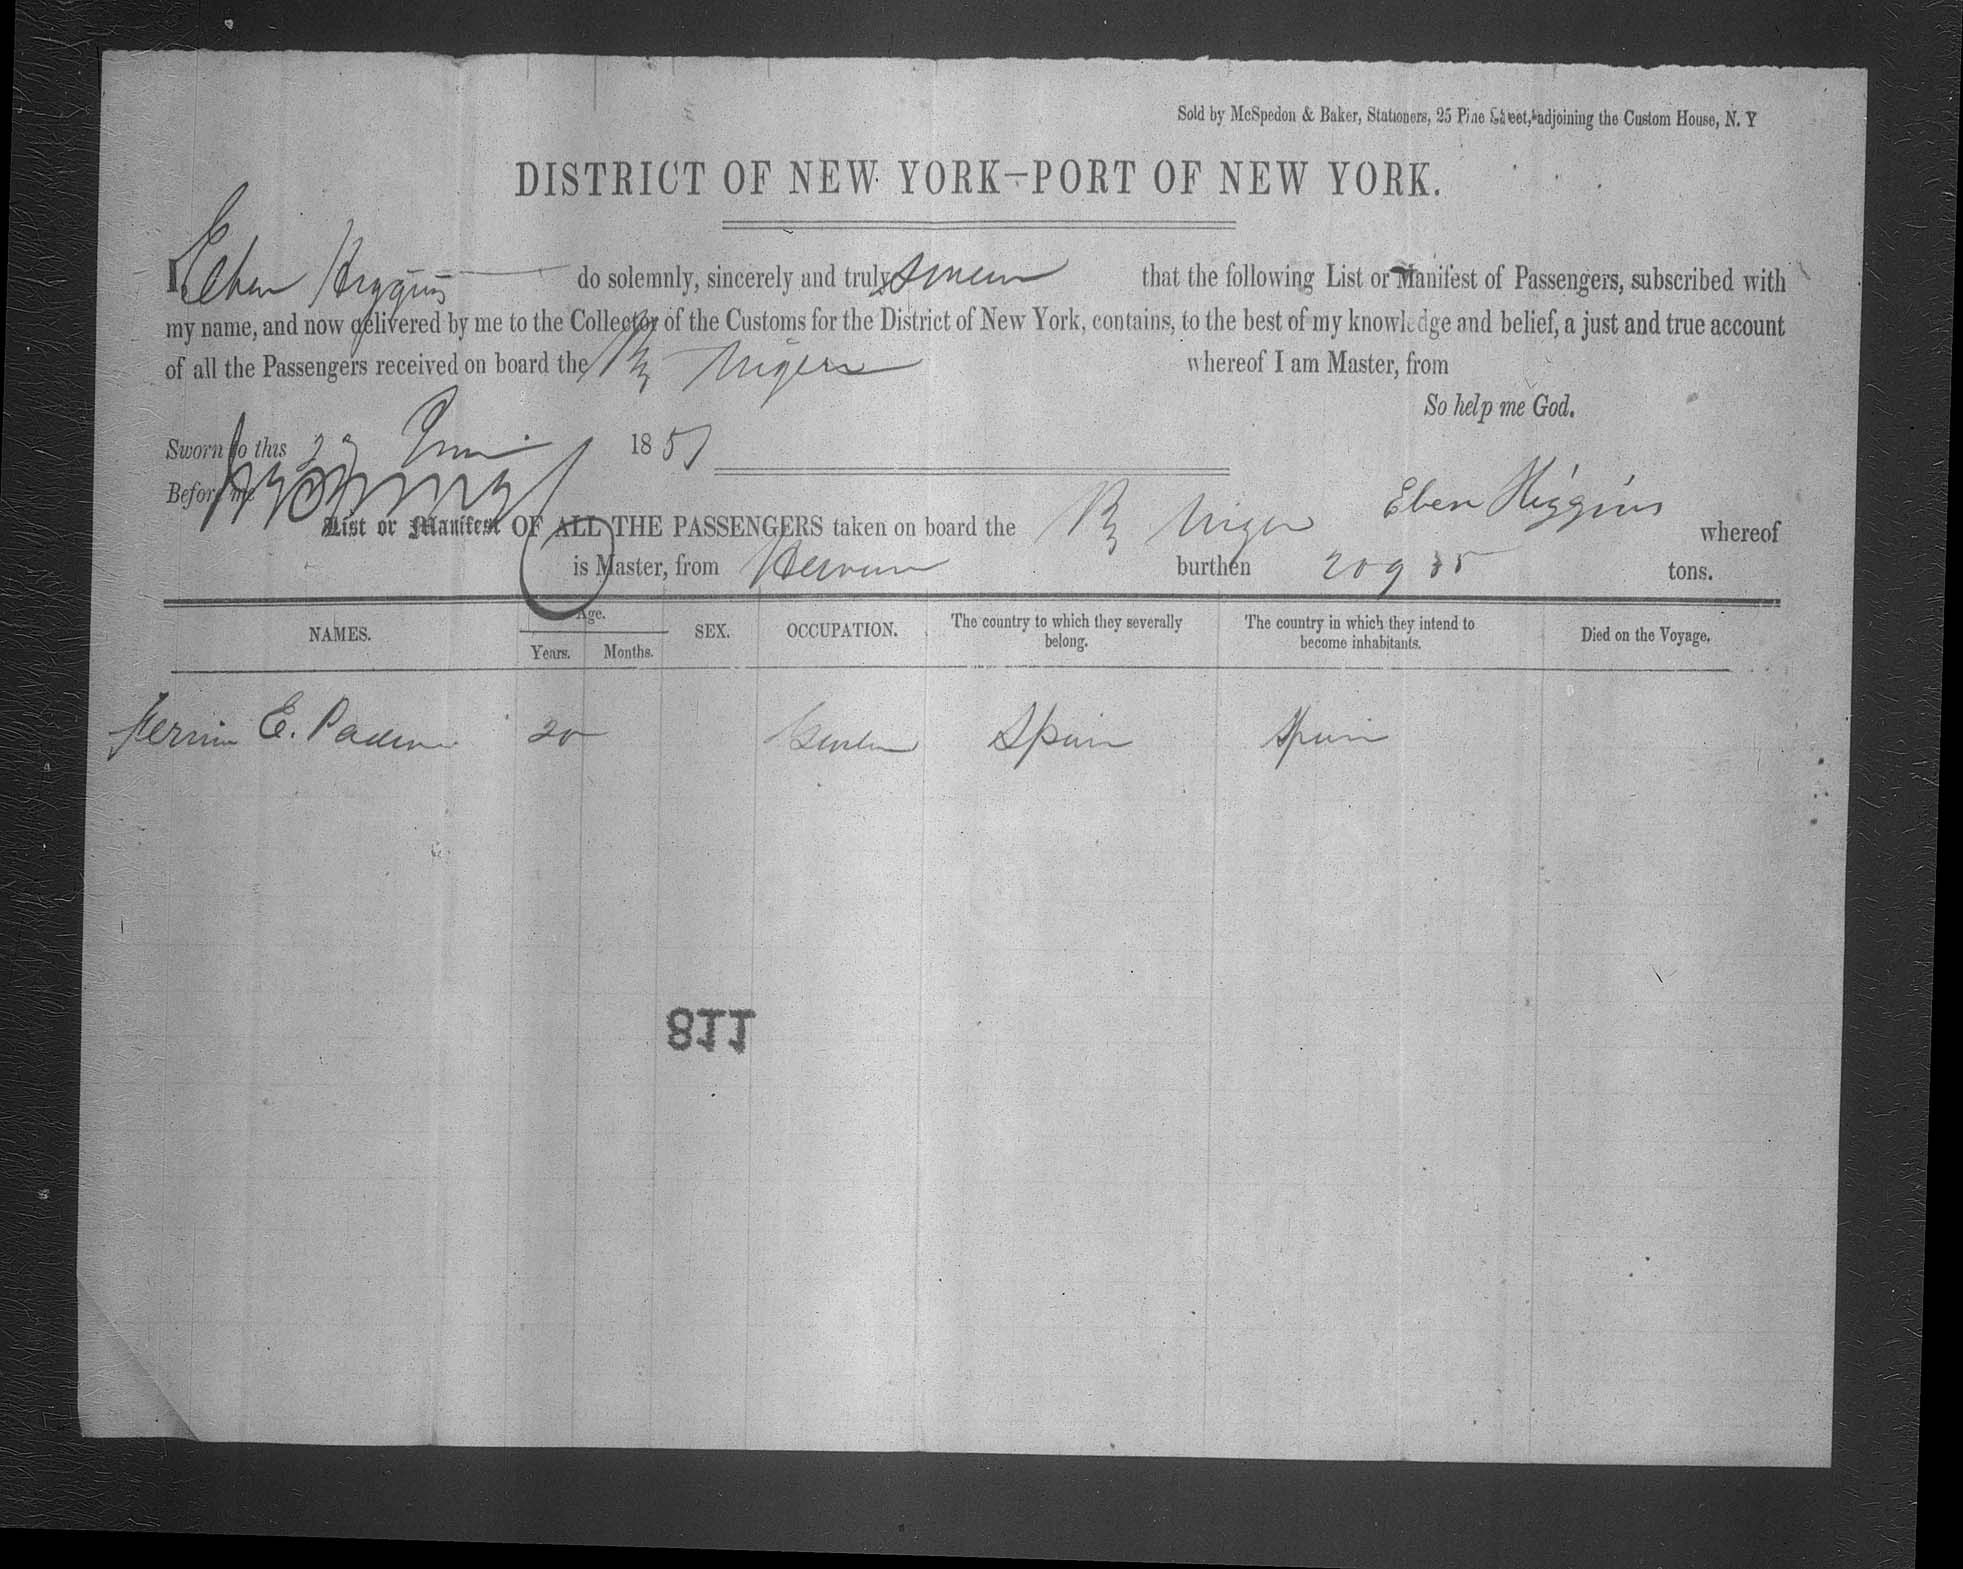 Sold by McSpedon & Baker, Stationers, 25 Pine Street, adjoining the Custom House, N. Y
DISTRICT OF NEW YORK—PORT OF NEW YORK.
I, Eben Higgins do solemnly, sincerely and truly swear that the following List or Manifest of Passengers, subscribed with
my name, and now delivered by me to the Collector of the Customs for the District of New York, contains, to the best of my knowledge and belief, a just and true account
of all the Passengers received on board the Bg Niger whereof I am Master, from
So help me God.
Sworn to this 1851
Before me
Eben Higgins
List or Manifest OF ALL THE PASSENGERS taken on board the Bg Niger whereof
is Master, from burthen 209 35 tons.
NAMES. Age. Years. Months. SEX. OCCUPATION. The country to which they severally belong. The country in which they intend to become inhabitants. Died on the Voyage.
E. 20 Spain Spain
811